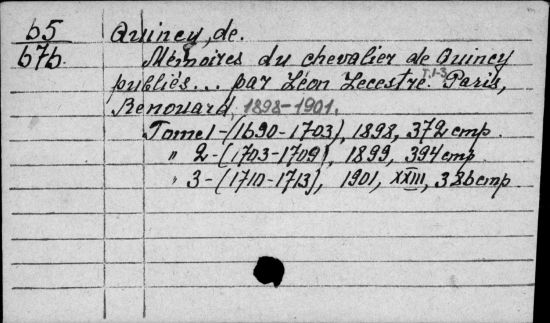 65
676.
Quincy, de.
Mémoires du chevalier de Quincy
publiés... par Léon Lecestre. T.1-3. Paris,
Renouard, 1898-1901.
Tome 1 - (1690-1703), 1898, 372 cmp.
" 2 - (1703-1709), 1899, 394 cmp.
" 3 - (1710-1713), 1901, XXIII, 386 cmp.